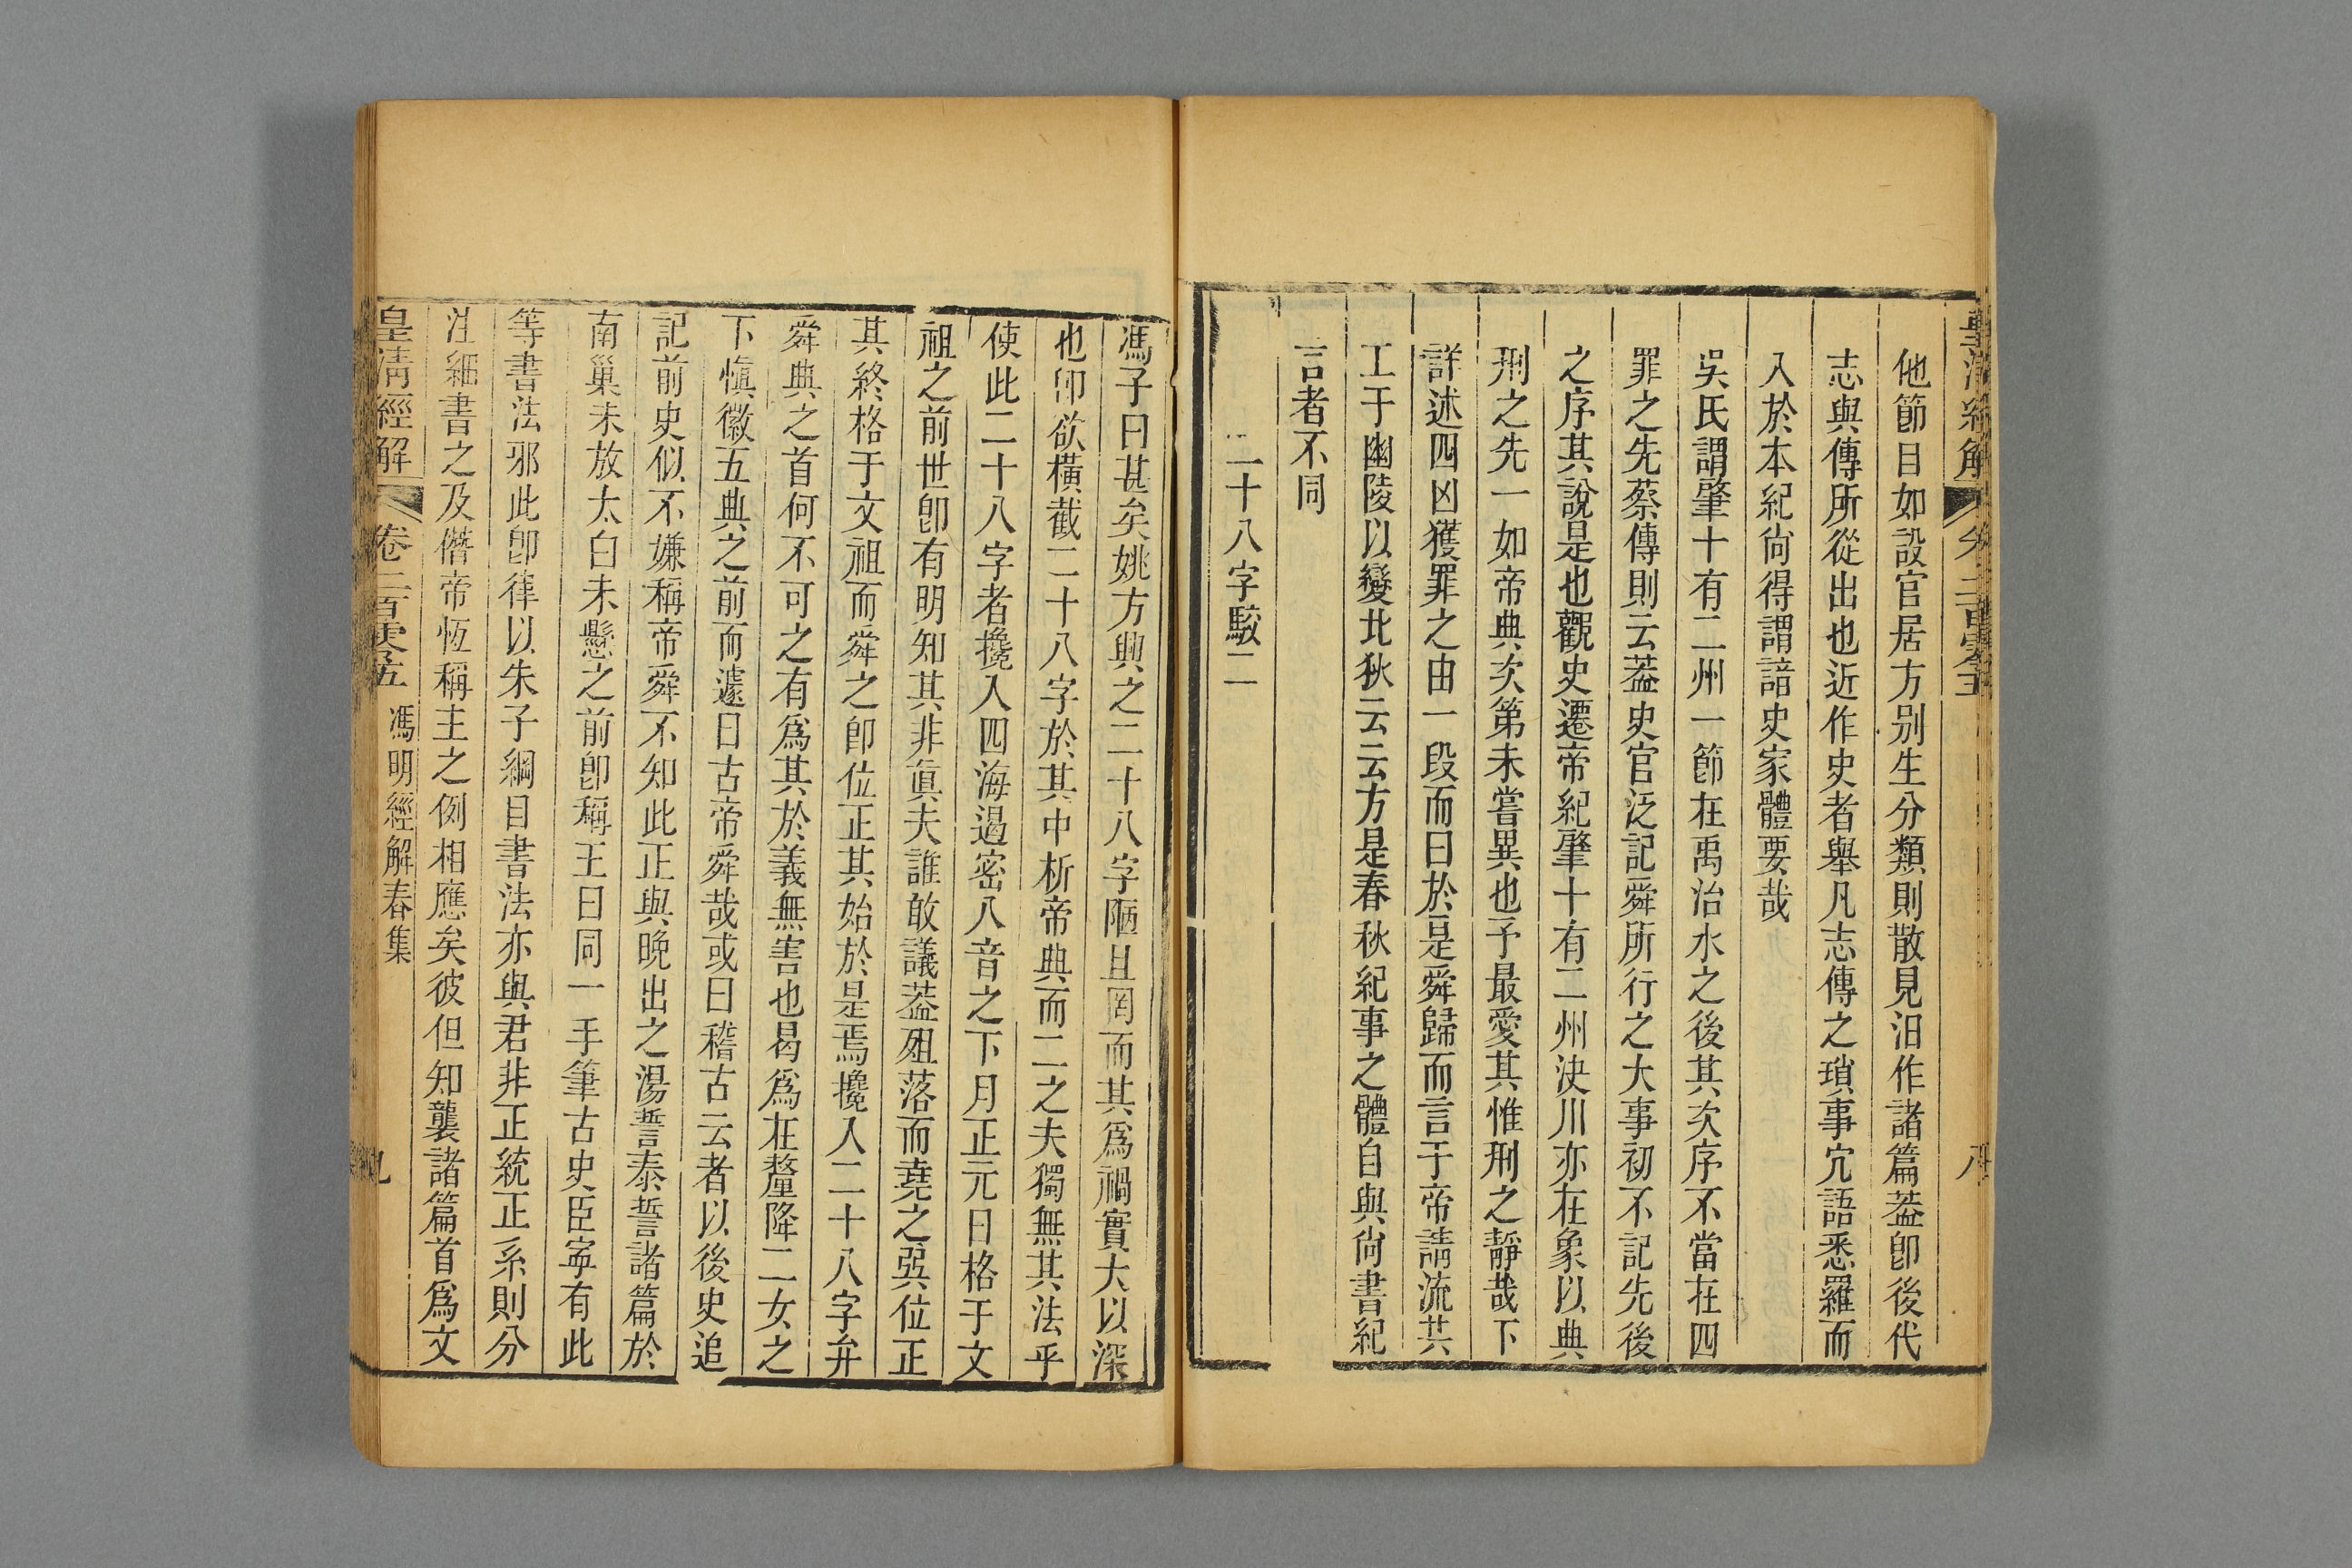 皇清經解
卷二百零五
八
他節目如設官居方别生分類則散見汨作諸篇葢卽後代
志與傳所從出也近作史者舉凡志傳之瑣事宂語悉羅而
入於本紀尙得謂諳史家體要哉
吳氏謂肇十有二州一節在禹治水之後其次序不當在四
罪之先蔡傳則云葢史官泛記舜所行之大事初不記先後
之序其說是也觀史遷帝紀肇十有二州決川亦在象以典
刑之先一如帝典次第未嘗異也予最愛其惟刑之靜哉下
詳述四凶獲罪之由一段而曰於是舜歸而言于帝請流共
工于幽陵以變北狄云云方是春秋紀事之體自與尙書紀
言者不同
二十八字駁二
馮子曰甚矣姚方興之二十八字陋且罔而其爲禍實大以深
也卽欲橫截二十八字於其中析帝典而二之夫獨無其法乎
使此二十八字者攙入四海遏密八音之下月正元日格于文
祖之前世卽有明知其非眞夫誰敢議葢殂落而堯之巽位正
其終格于文祖而舜之卽位正其始於是焉攙入二十八字弁
舜典之首何不可之有爲其於義無害也曷爲在釐降二女之
下愼徽五典之前而遽曰古帝舜哉或曰稽古云者以後史追
記前史似不嫌稱帝舜不知此正與晚出之湯誓泰誓諸篇於
南巢未放太白未懸之前卽稱王曰同一手筆古史臣寧有此
等書法邪此卽律以朱子綱目書法亦與君非正統正系則分
注細書之及僭帝恆稱主之例相應矣彼但知襲諸篇首爲文
皇清經解
卷二百零五
馮明經解春集
九